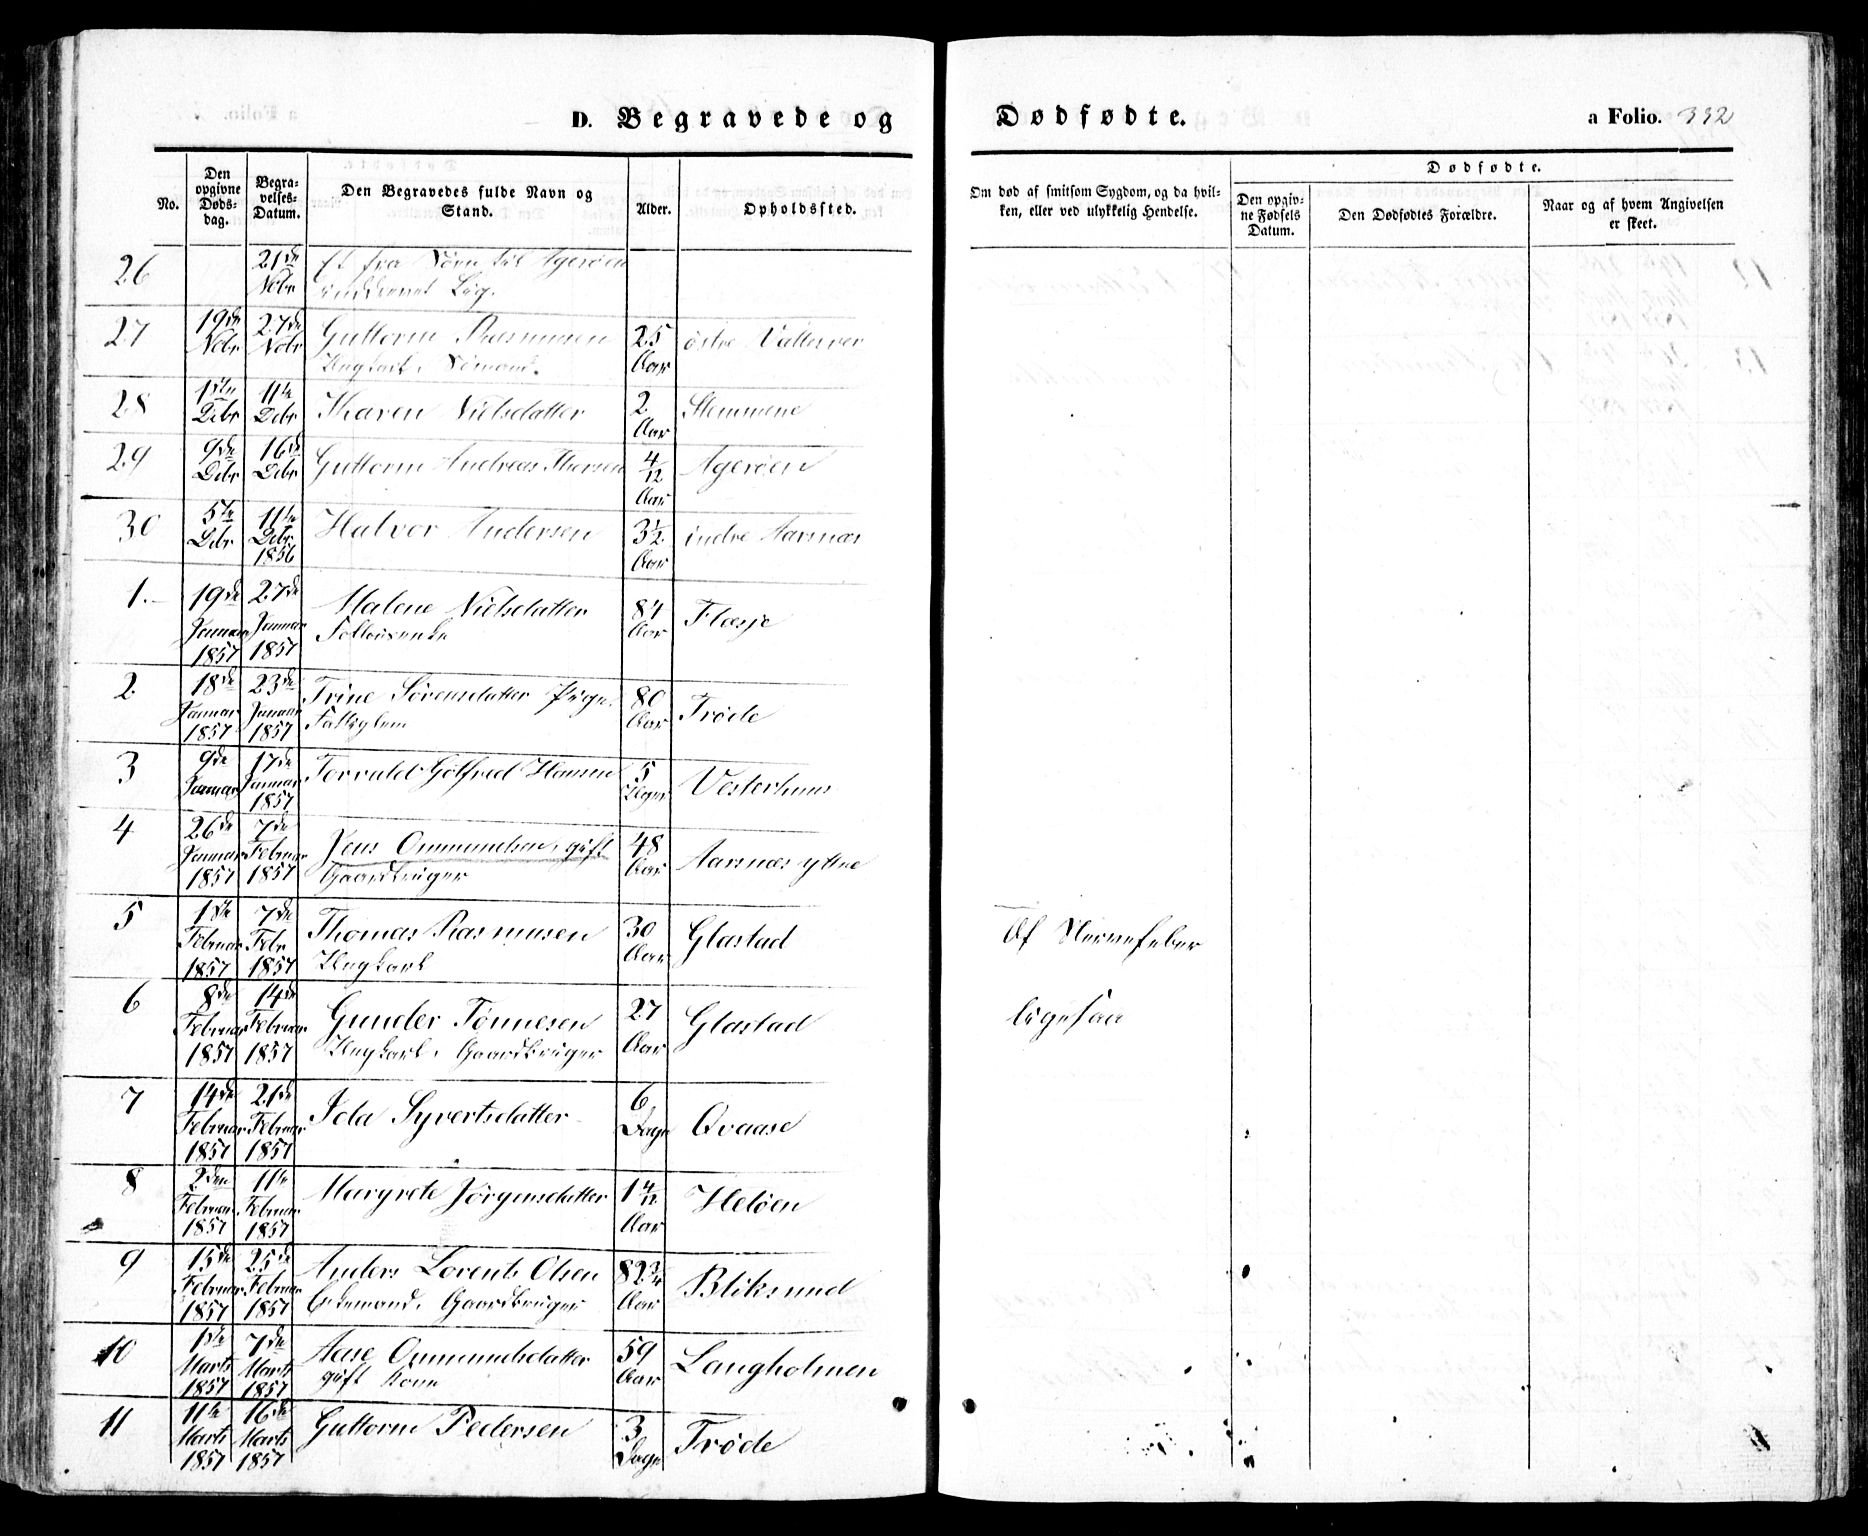 D. Begravede og Dødfødte.
a Folio. 332
No.
Den opgivne Døds-dag.
Begra-velses-Datum.
Den Begravedes fulde Navn og Stand.
Alder.
Opholdssted.
Om død af smitsom Sygdom, og da hvil-ken, eller ved ulykkelig Hendelse.
Dødfødte.
Den opgiv-ne Fødsels Datum.
Den Dødfødtes Forældre.
Naar og af hvem Angivelsen er skeet.
26 21de Nobr Et fra Søen til Agerøen
inddrevet Lig.
27 19de Nobr 27de Nobr Guttorm Rasmusen 25 Aar østre Vallesver
Ungkarl, Sømand.
28 1ste Debr 11te Debr Karen Nielsdatter 2 Aar Stemmene
29 9de Debr 16de Debr Guttorm Andreas Thorsen 4/12 Aar Agerøen
30 5te Debr 11te Debr 1856 Halvor Andersen 3½ Aar indre Aarsnæs
1. 19de Januar 1857 27de Januar 1857 Malene Nielsdatter 84 Aar Flæsje
Føllouxenke
2 18de Januar 1857 23de Januar 1857 Trine Sørensdatter Pige, 80 Aar Trøde
Fattiglem
3 9de Januar 17de Januar 1857 Torvald Gotfred Hansen 5 Uger Vesterhuus
4 26de Januar 1857 7de Februar 1857 Jens Ommundsen, gift 48 Aar Aarsnæs yttre
Gaardbruger
5 1ste Februar 1857 7de Febr 1857 Thomas Rasmusen 30 Aar Glastad Af Nervefeber
Ungkarl
6 8de Februar 1857 14de Februar 1857 Gunder Tønnesen 27 Aar Glastad ligesaa
Ungkarl, Gaardbruger
7 14de Februar 1857 21de Februar 1857 Ida Syvertsdatter 6 Dage Qvaase
8 2den Februar 1857 11te Februar 1857 Margrete Jørgensdatter 1 4/12 Aar Heløen
9 15de Februar 1857 25de Februar 1857 Anders Lorents Olsen 82¾ Aar Bliksund
Enkemand, Gaardbruger
10 1ste Marts 1857 7de Marts 1857 Aase Ommundsdatter 59 Aar Langholmen
gift Kone
11 11te Marts 1857 16de Marts 1857 Guttorm Pedersen 3 Dage Trøde